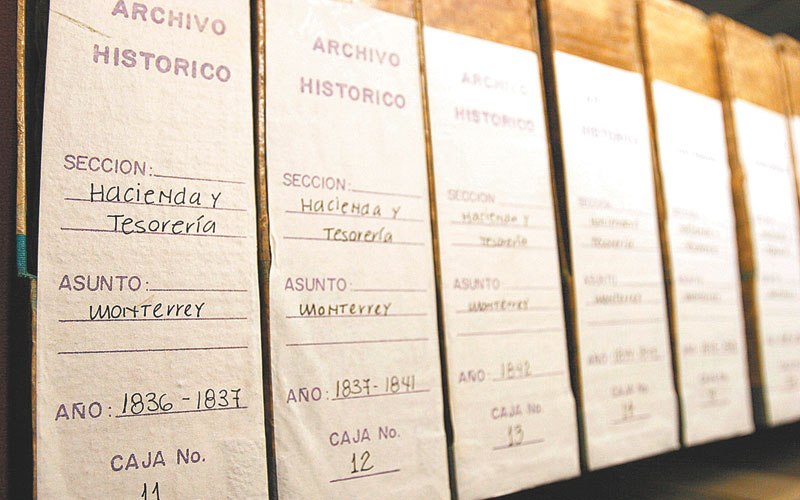 ARCHIVO
HISTORICO
SECCION:
Hacienda y
Tesorería
ASUNTO:
Monterrey
AÑO: 1836-1837
CAJA No.
11
ARCHIVO
HISTORICO
SECCION:
Hacienda y
Tesorería
ASUNTO:
Monterrey
AÑO: 1837-1841
CAJA No.
12
ARCHIVO
HISTORICO
SECCION
Hacienda y
Tesorería
ASUNTO
Monterrey
AÑO: 1842
CAJA No.
13
HISTORICO
SECCION
Tesorería
ASUNTO
Monterrey
AÑO:
CAJA No.
14